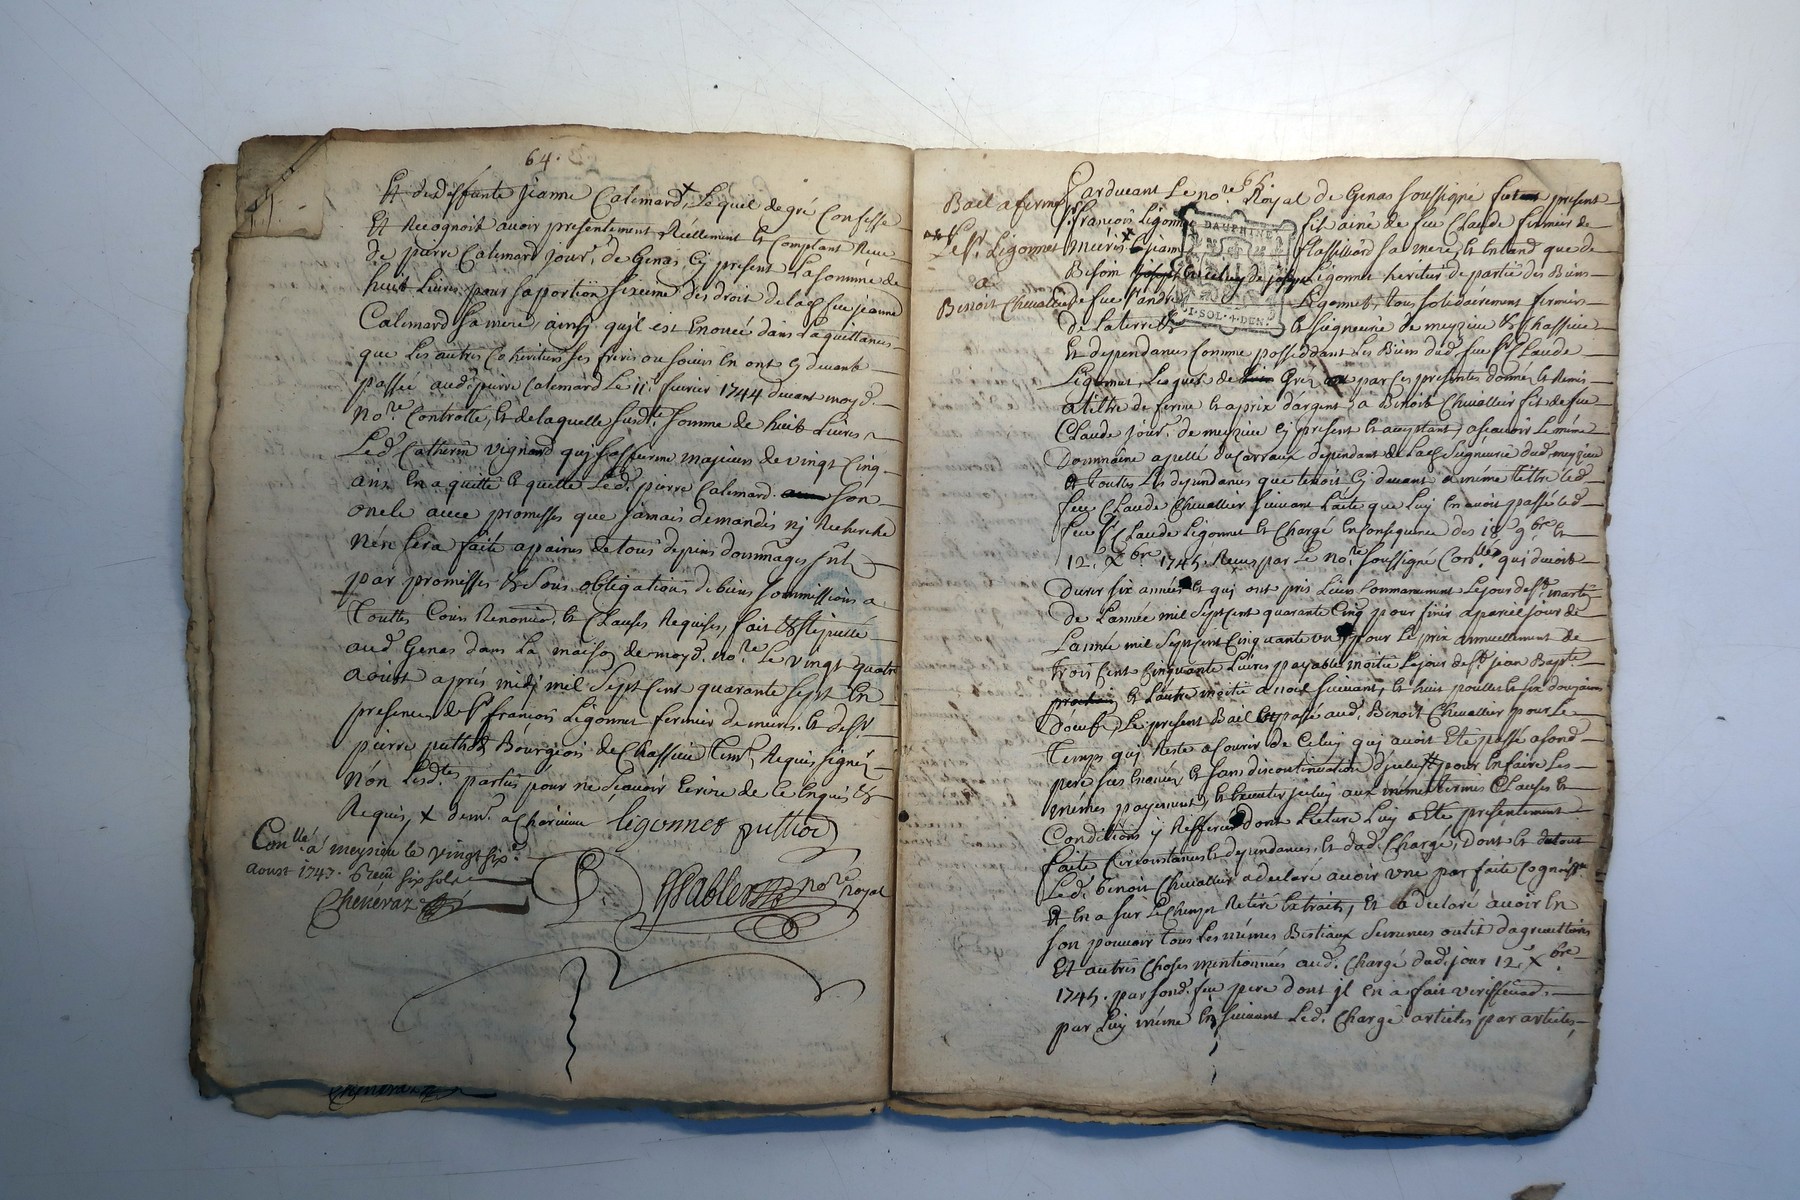 64.
Et des deffante jeanne Calimard, Lequel de gré Confesse
Et Recognoit avoir presentement Réellement et Comptant Receu
de pierre Calimard jour.r de Genas Cy present La somme de
huit Livres pour sa portion sixieme des droit de lad. feue jeanne
Calimard sa mere, ainsy qu'il est Enoncé dans La quittance
que Les autres Coheritiers ses freres ou soeurs En ont Cy devant
passée aud. pierre Calimard Le 11e fevrier 1744 devant moyd.
No.re Controlle, Et de laquelle susd.te somme de huit Livres
Led. Catherin vignard qui s'affirme majeur de vingt Cinq
ans En a quitté et quitte Led. pierre Calimard son
oncle avec promesses que jamais demandes ny Recherche
n'en sera faite a peines de tous depens dommages
par promesses et sous obligations de biens sommissions a
Touttes Cours Renonció. et Clauses Requises, fait et stipullé
aud. Genas dans La maison de moyd. no.re Le vingt quatre
aoust après midy mil Sept Cent quarante sept En
presence de Sr françois Ligonnet fermier de mieris. et de Sr
pierre puthod Bourgeois de Chassieu Tem.s Requis signés
Non Lesd.tes parties pour ne sçavoir Ecrire de Ce Enquis et
Requis, x dem.t a Charvieu Ligonnet puthod
Con.llé a meysieu le vingt six
aoust 1747. Receu six sols
Cheneraz
Sablet no.re royal
65.
Bail a ferme
Sr. Ligonnet
a
Benoit Chevallier
Pardevant Le no.re Royal de Genas soussigné fut present
Sr. françois Ligonnet fils ainé de feu Claude fermier de
mieris sa mere, Et En tand que de
Besoin Ligonnet heritier de partie des Biens
de feue Ligonnet, tous solidairement fermiers
DAUPHINE
SOL·4·DEN.
de La terre et seigneurie de meyzieu et Chassieu
Et dependances Comme posseddant Les Biens dud. feu Sr Claude
Ligonnet, Lesquels de Gré ont par Ces presentes donné et Remis
a tiltre de ferme et a prix d'argent, a Benoit Chevallier fils de feu
Claude jour.r de meyzieu Cy present et acceptant, a scavoir Le même
Dommaine apellé du Carraux dependant de Lad. Seigneurie dud. meyzieu
et touttes Les dependances que tenoit Cy devant a même tiltre led.
feu Claude Chevallier suivant L'acte que Luy En avoit passé led.
feu Sr Claude Ligonnet et Chargé En Consequence des 18e 9.bre et
12e Xbre 1745. Receus par Le No.re soussigné Con.llés qui devoit
Durer six années et qui ont pris Leur Commancement Le jour de St. martin
de L'année mil Sept Cent quarante Cinq pour finir a pareil jour de
L'année mil Sept Cent Cinquante un, pour Le prix annuellement de
trois Cent Cinquante Livres payable moitié Le jour de St. jean Bapt.e
prochain et L'autre moitié a noel suivant, et huit poullets et six douzaines
d'oeufs, Le present Bail est passé aud. Benoit Chevallier pour Le
Temps qui Reste a Courir de Celuy qui avoit Eté passé a sond.
pere sus Enoncé et sans discontinuation d'iceluy pour En faire Les
mêmes payements, et Executer iceluy aux mêmes termes Clauses et
Conditions y Refferées dont Lecture Luy a Eté presentement
faite Circonstances et dependances, et dud. Chargé, Dont et du tout
Led. Benoit Chevallier a declaré avoir une parfaite Cognoiss.ce
Et En a sur Le Champ Retiré Extraits, Et a declaré avoir En
son pouvoir tous Les mêmes Bestiaux Semences outils d'agriculture
Et autres Choses mentionnées aud. Chargé dud. jour 12e Xbre
1745. par sond. feu pere dont jl En a fait veriffica.on
par Luy même En suivant Led. Chargé articles par articles,